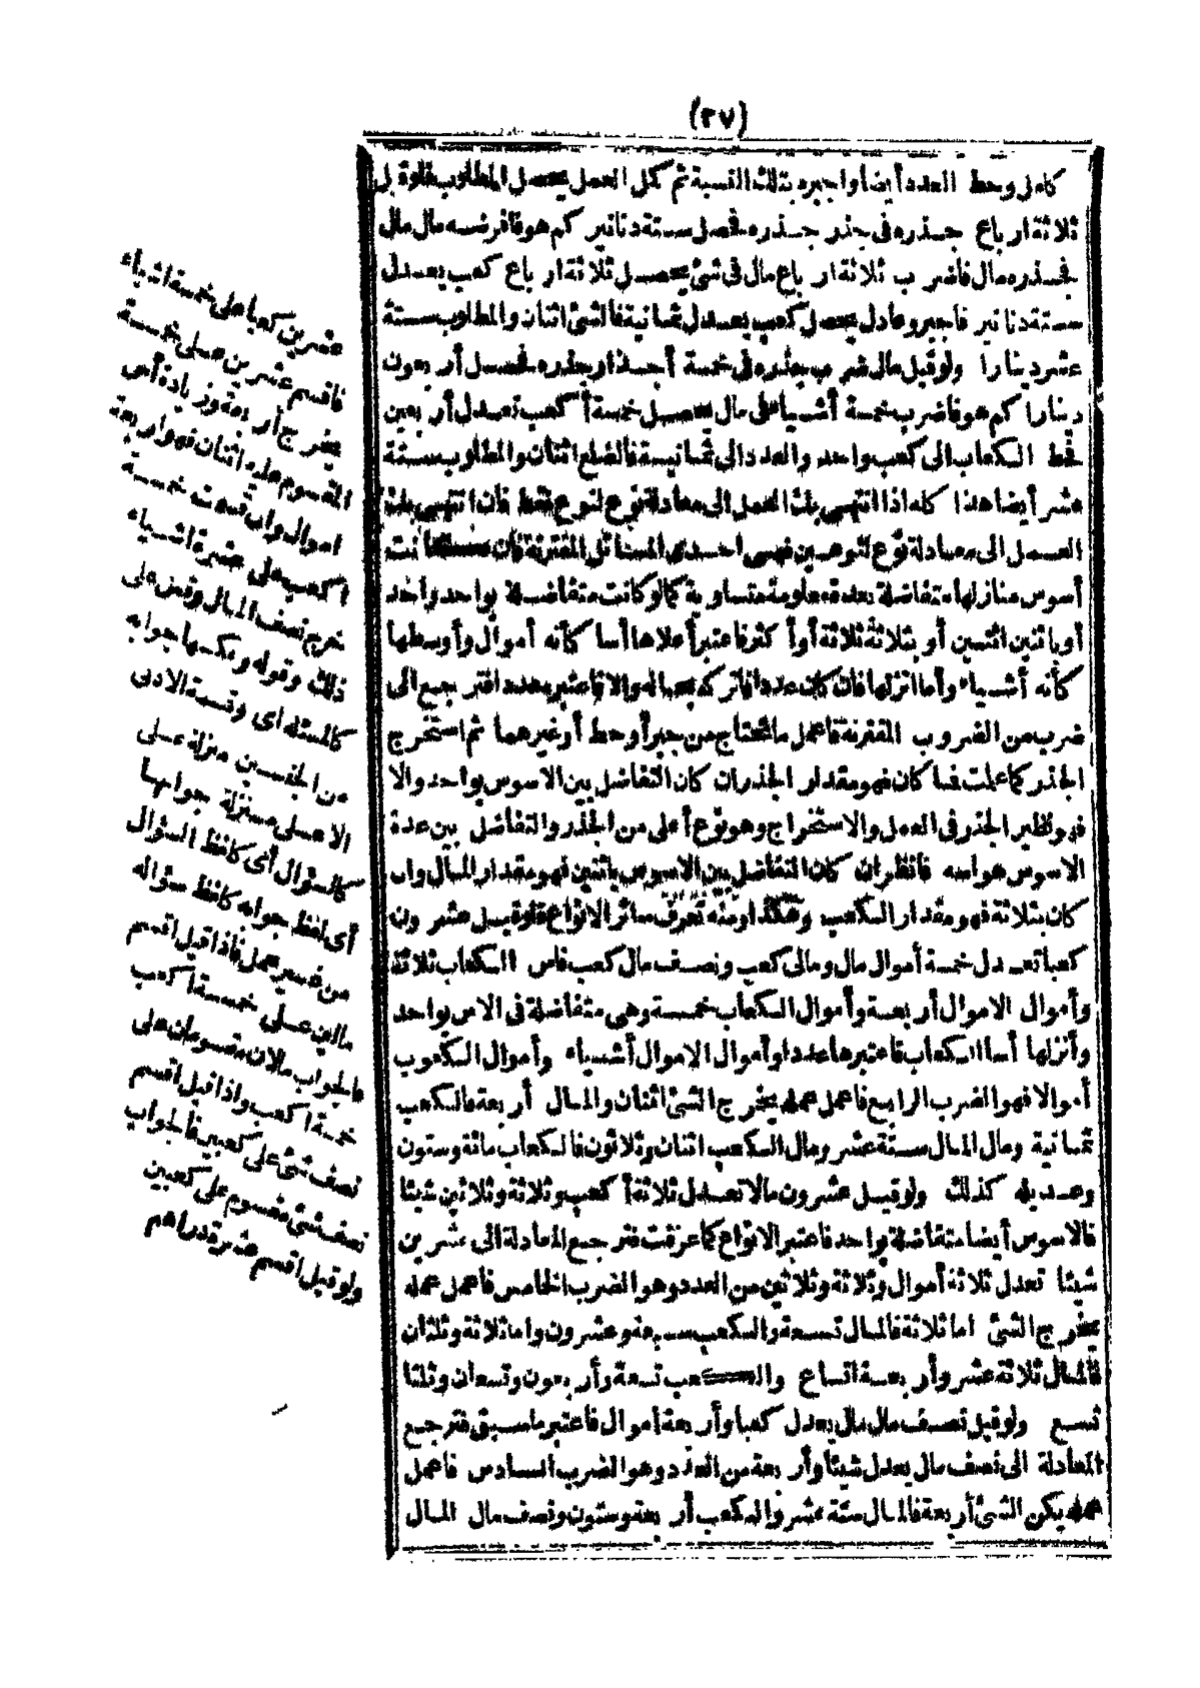 (٢٧)
كامل وحط العدد أيضا واجبره بتلك النسبة ثم كمل العمل يحصل المطلوب فلو قيل
ثلاثة ارباع جذره فى جذر جذره فحصل ستة دنانير كم هو فافرضه مال مال
فجذره مال فاضرب ثلاثة ارباع مال فى شئ يحصل ثلاثة ارباع كعب يعدل
ستة دنانير فاجبر وعادل يحصل كعب يعدل ثمانية فالشئ اثنان والمطلوب ستة
عشر دينارا ولو قيل مال ضرب جذره فى خمسة أجذار جذره فحصل أربعون
دينارا كم هو فاضرب خمسة أشياء فى مال يحصل خمسة أكعب تعدل أربعين
فحط الكعاب الى كعب واحد والعدد الى ثمانية فالضلع اثنان والمطلوب ستة
عشر أيضا هذا كله اذا انتهى بك العمل الى معادلة نوع لنوع فقط فان انتهى بك
العمل الى معادلة نوع لنوعين فهى احدى المسائل المقترنة فان كانت
أسوس منازلها متفاضلة بعدة معلومة متساوية كما لو كانت متفاضلة بواحد واحد
أو باثنين اثنين أو بثلاثة ثلاثة أو أكثر فاعتبر أعلاها أسا كأنه أموال وأوسطها
كأنه أشياء وأما انزلها فان كان عددا فاتركه بحاله والا فاعتبره عددا فترجع الى
ضرب من الضروب المقترنة فاعمل ما تحتاج من جبر أو حط أو غيرهما ثم استخرج
الجذر كما علمت فما كان فهو مقدار الجذر ان كان التفاضل بين الاسوس بواحد والا
فهو نظير الجذر فى العمل والاستخراج وهو نوع أعلى من الجذر والتفاضل بين عدة
الاسوس هو اسه فانظر ان كان التفاضل بين الاسوس باثنين فهو مقدار المال وان
كان بثلاثة فهو مقدار الكعب وهكذا ومنه تعرف سائر الانواع فلو قيل عشرون
كعبا تعدل خمسة أموال مال ومالى كعب ونصف مال كعب فاس الكعاب ثلاثة
وأموال الاموال أربعة وأموال الكعاب خمسة وهى متفاضلة فى الاس بواحد
وأنزلها أسا الكعاب فاعتبرها عددا وأموال الاموال أشياء وأموال الكعوب
أموالا فهو الضرب الرابع فاعمل عمله يخرج الشئ اثنان والمال أربعة فالكعب
ثمانية ومال المال ستة عشر ومال الكعب اثنان وثلاثون فالكعاب مائة وستون
وعديله كذلك ولو قيل عشرون مالا تعدل ثلاثة أكعب وثلاثة وثلاثين شيئا
فالاسوس أيضا متفاضلة بواحد فاعتبر الانواع كما عرفت فترجع المعادلة الى عشرين
شيئا تعدل ثلاثة أموال وثلاثة وثلاثين من العدد وهو الضرب الخامس فاعمل عمله
يخرج الشئ اما ثلاثة فالمال تسعة والكعب سبعة وعشرون واما ثلاثة وثلثان
فالمال ثلاثة عشر وأربعة اتساع والكعب تسعة وأربعون وتسعان وثلثا
تسع ولو قيل نصف مال مال يعدل كعبا وأربعة أموال فاعتبر ما سبق فترجع
المعادلة الى نصف مال يعدل شيئا وأربعة من العدد وهو الضرب السادس فاعمل
عمله يكن الشئ أربعة فالمال ستة عشر والمكعب أربعة وستون ونصف مال المال
عشرين كعبا على خمسة اشياء
فاقسم عشرين على خمسة
يخرج أربعة وزيادة أس
المقسوم عليه اثنان فهو اربعة
اموال وان قسمت خمسة
اكعب على عشرة اشياء
خرج نصف المال وقس على
ذلك وقوله وعكسها جوابه
كالمسئلة اى وقسمة الادنى
من الجنسين منزلة على
الاعلى منزلة جوابها
كالسؤال أى كلفظ السؤال
أى لفظ جوابه كلفظ سؤاله
من غير عمل فاذا قيل اقسم
مالين على خمسة اكعب
فالجواب مالان مقسومان على
خمسة اكعب واذا قيل اقسم
نصف شئ على كعبين فالجواب
نصف شئ مقسوم على كعبين
ولو قيل اقسم عشرة دراهم